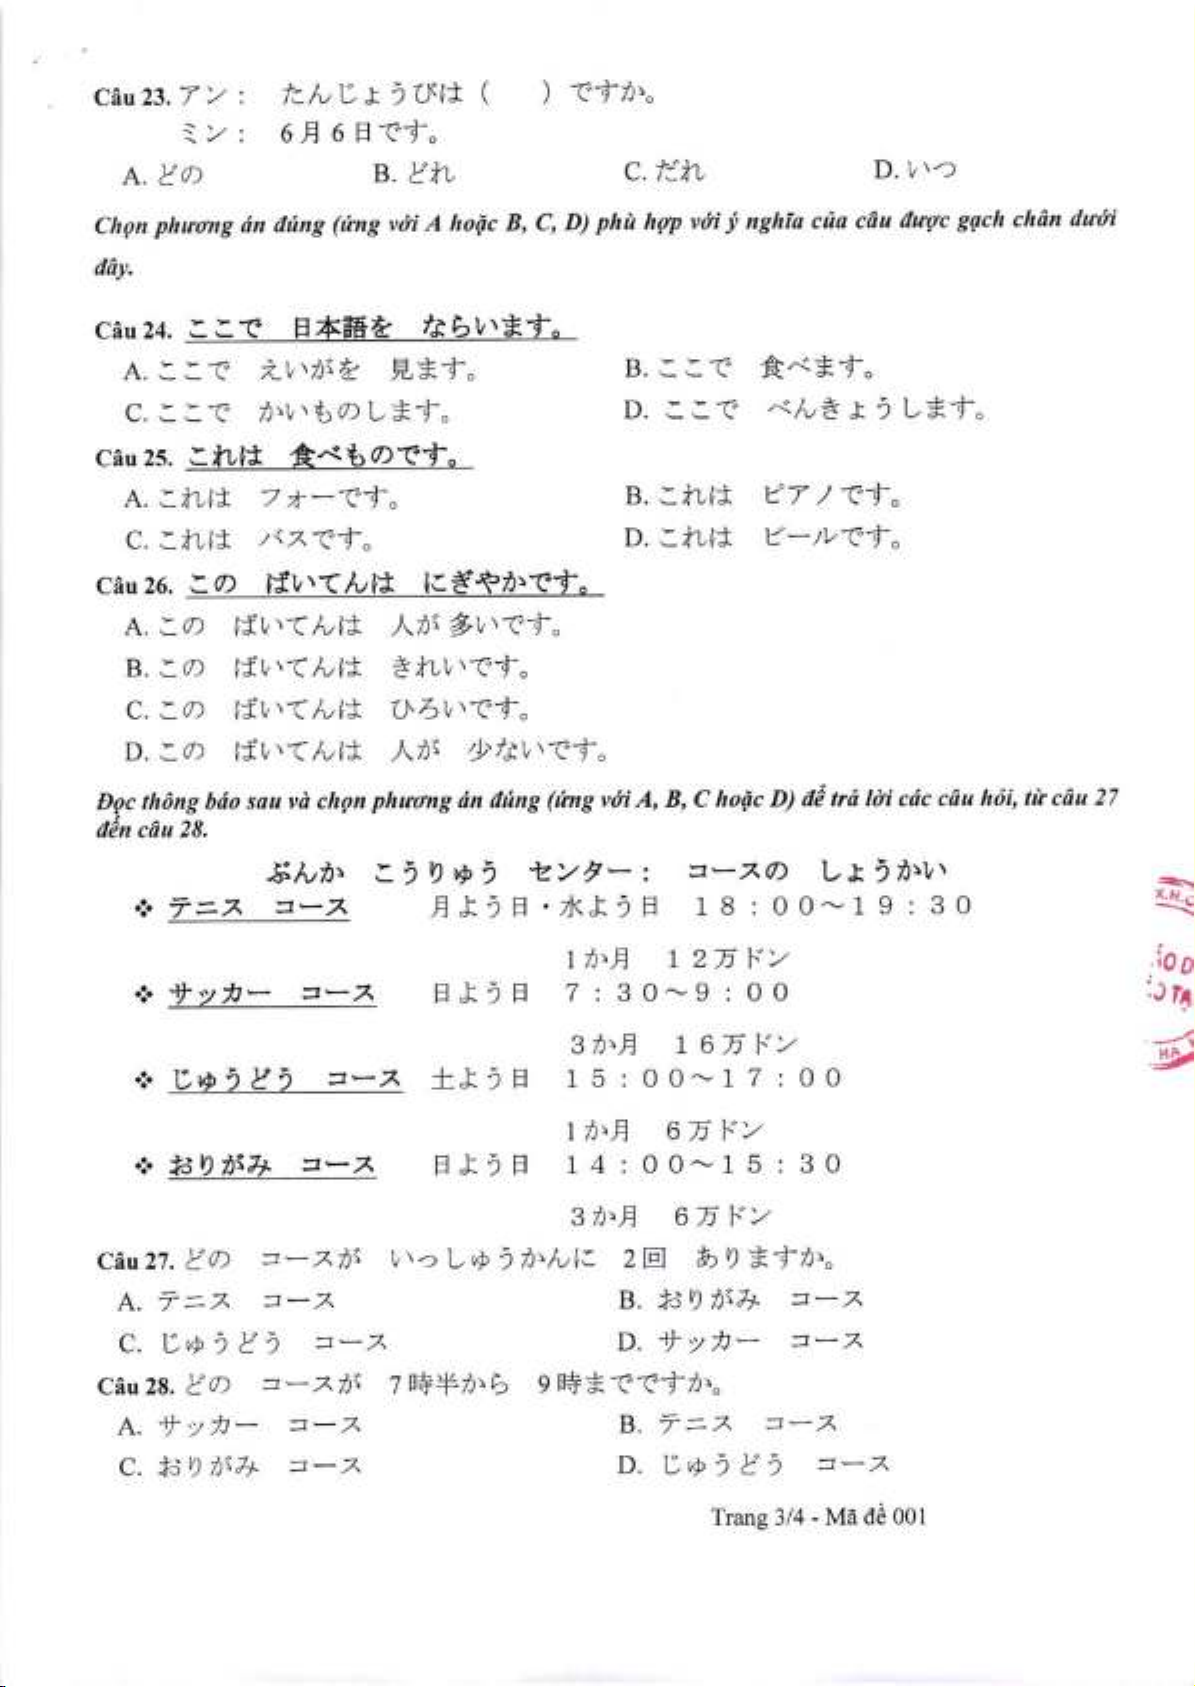 Câu 23. アン： たんじょうびは（　　）ですか。
ミン： 6月6日です。
A. どの B. どれ C. だれ D. いつ
Chọn phương án đúng (ứng với A hoặc B, C, D) phù hợp với ý nghĩa của câu được gạch chân dưới
đây.
Câu 24. ここで　日本語を　ならいます。
A. ここで　えいがを　見ます。 B. ここで　食べます。
C. ここで　かいものします。 D. ここで　べんきょうします。
Câu 25. これは　食べものです。
A. これは　フォーです。 B. これは　ピアノです。
C. これは　バスです。 D. これは　ビールです。
Câu 26. この　ばいてんは　にぎやかです。
A. この　ばいてんは　人が 多いです。
B. この　ばいてんは　きれいです。
C. この　ばいてんは　ひろいです。
D. この　ばいてんは　人が　少ないです。
Đọc thông báo sau và chọn phương án đúng (ứng với A, B, C hoặc D) để trả lời các câu hỏi, từ câu 27
đến câu 28.
ぶんか　こうりゅう　センター：　コースの　しょうかい
❖ テニス　コース　月よう日・水よう日　１８：００～１９：３０
１か月　１２万ドン
❖ サッカー　コース　日よう日　７：３０～９：００
３か月　１６万ドン
❖ じゅうどう　コース　土よう日　１５：００～１７：００
１か月　６万ドン
❖ おりがみ　コース　日よう日　１４：００～１５：３０
３か月　６万ドン
Câu 27. どの　コースが　いっしゅうかんに　2回　ありますか。
A. テニス　コース B. おりがみ　コース
C. じゅうどう　コース D. サッカー　コース
Câu 28. どの　コースが　7時半から　9時までですか。
A. サッカー　コース B. テニス　コース
C. おりがみ　コース D. じゅうどう　コース
Trang 3/4 - Mã đề 001